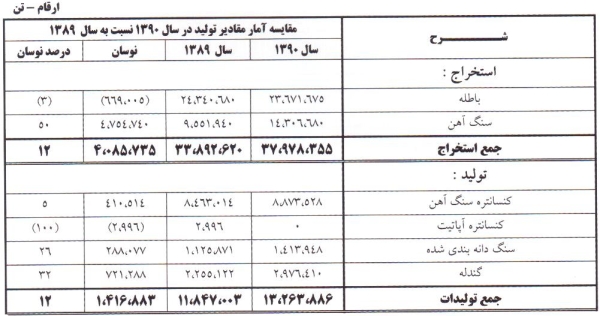 ارقام - تن
شـــرح	مقایسه آمار مقادیر تولید در سال ۱۳۹۰ نسبت به سال ۱۳۸۹
سال ۱۳۹۰	سال ۱۳۸۹	نوسان	درصد نوسان
استخراج :
باطله	۲۳،۶۷۱،۶۷۵	۲۴،۳۴۰،۶۸۰	(۶۶۹،۰۰۵)	(۳)
سنگ آهن	۱۴،۳۰۶،۶۸۰	۹،۵۵۱،۹۴۰	۴،۷۵۴،۷۴۰	۵۰
جمع استخراج	۳۷،۹۷۸،۳۵۵	۳۳،۸۹۲،۶۲۰	۴،۰۸۵،۷۳۵	۱۲
تولید :
کنسانتره سنگ آهن	۸،۸۷۳،۵۲۸	۸،۴۶۳،۰۱۴	۴۱۰،۵۱۴	۵
کنسانتره آپاتیت	۰	۲،۹۹۶	(۲،۹۹۶)	(۱۰۰)
سنگ دانه بندی شده	۱،۴۱۳،۹۴۸	۱،۱۲۵،۸۷۱	۲۸۸،۰۷۷	۲۶
گندله	۲،۹۷۶،۴۱۰	۲،۲۵۵،۱۲۲	۷۲۱،۲۸۸	۳۲
جمع تولیدات	۱۳،۲۶۳،۸۸۶	۱۱،۸۴۷،۰۰۳	۱،۴۱۶،۸۸۳	۱۲